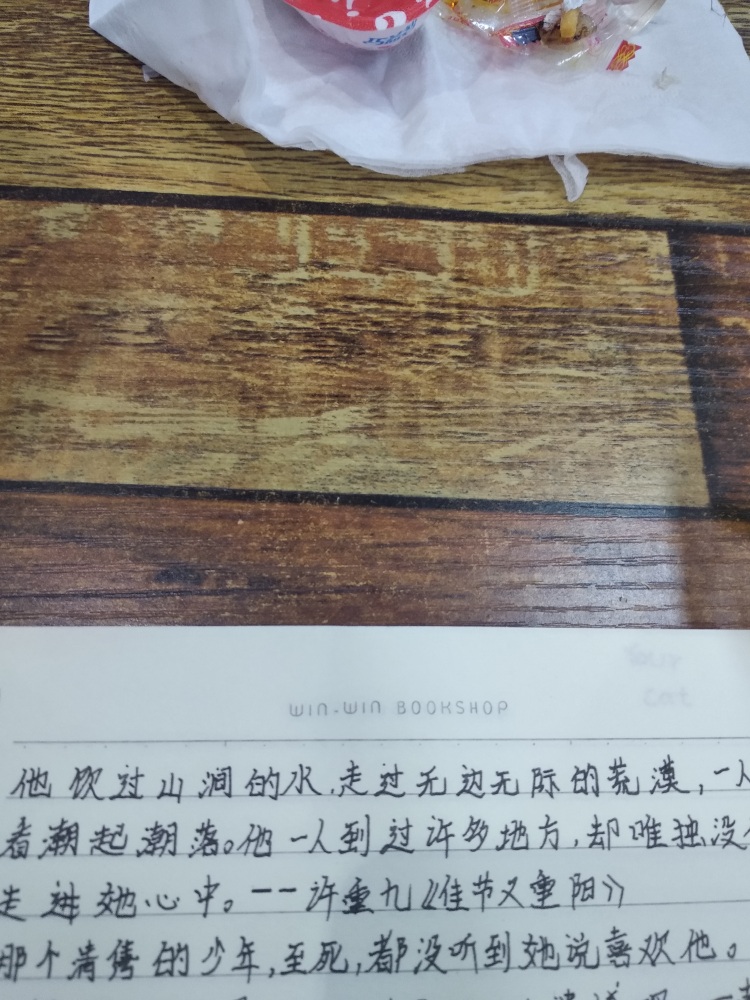 WIN-WIN BOOKSHOP
他饮过山涧的水,走过无边无际的荒漠,一人
看潮起潮落。他一人到过许多地方,却唯独没
走进她心中。——许重九《佳节又重阳》
那个清隽的少年,至死,都没听到她说喜欢他。